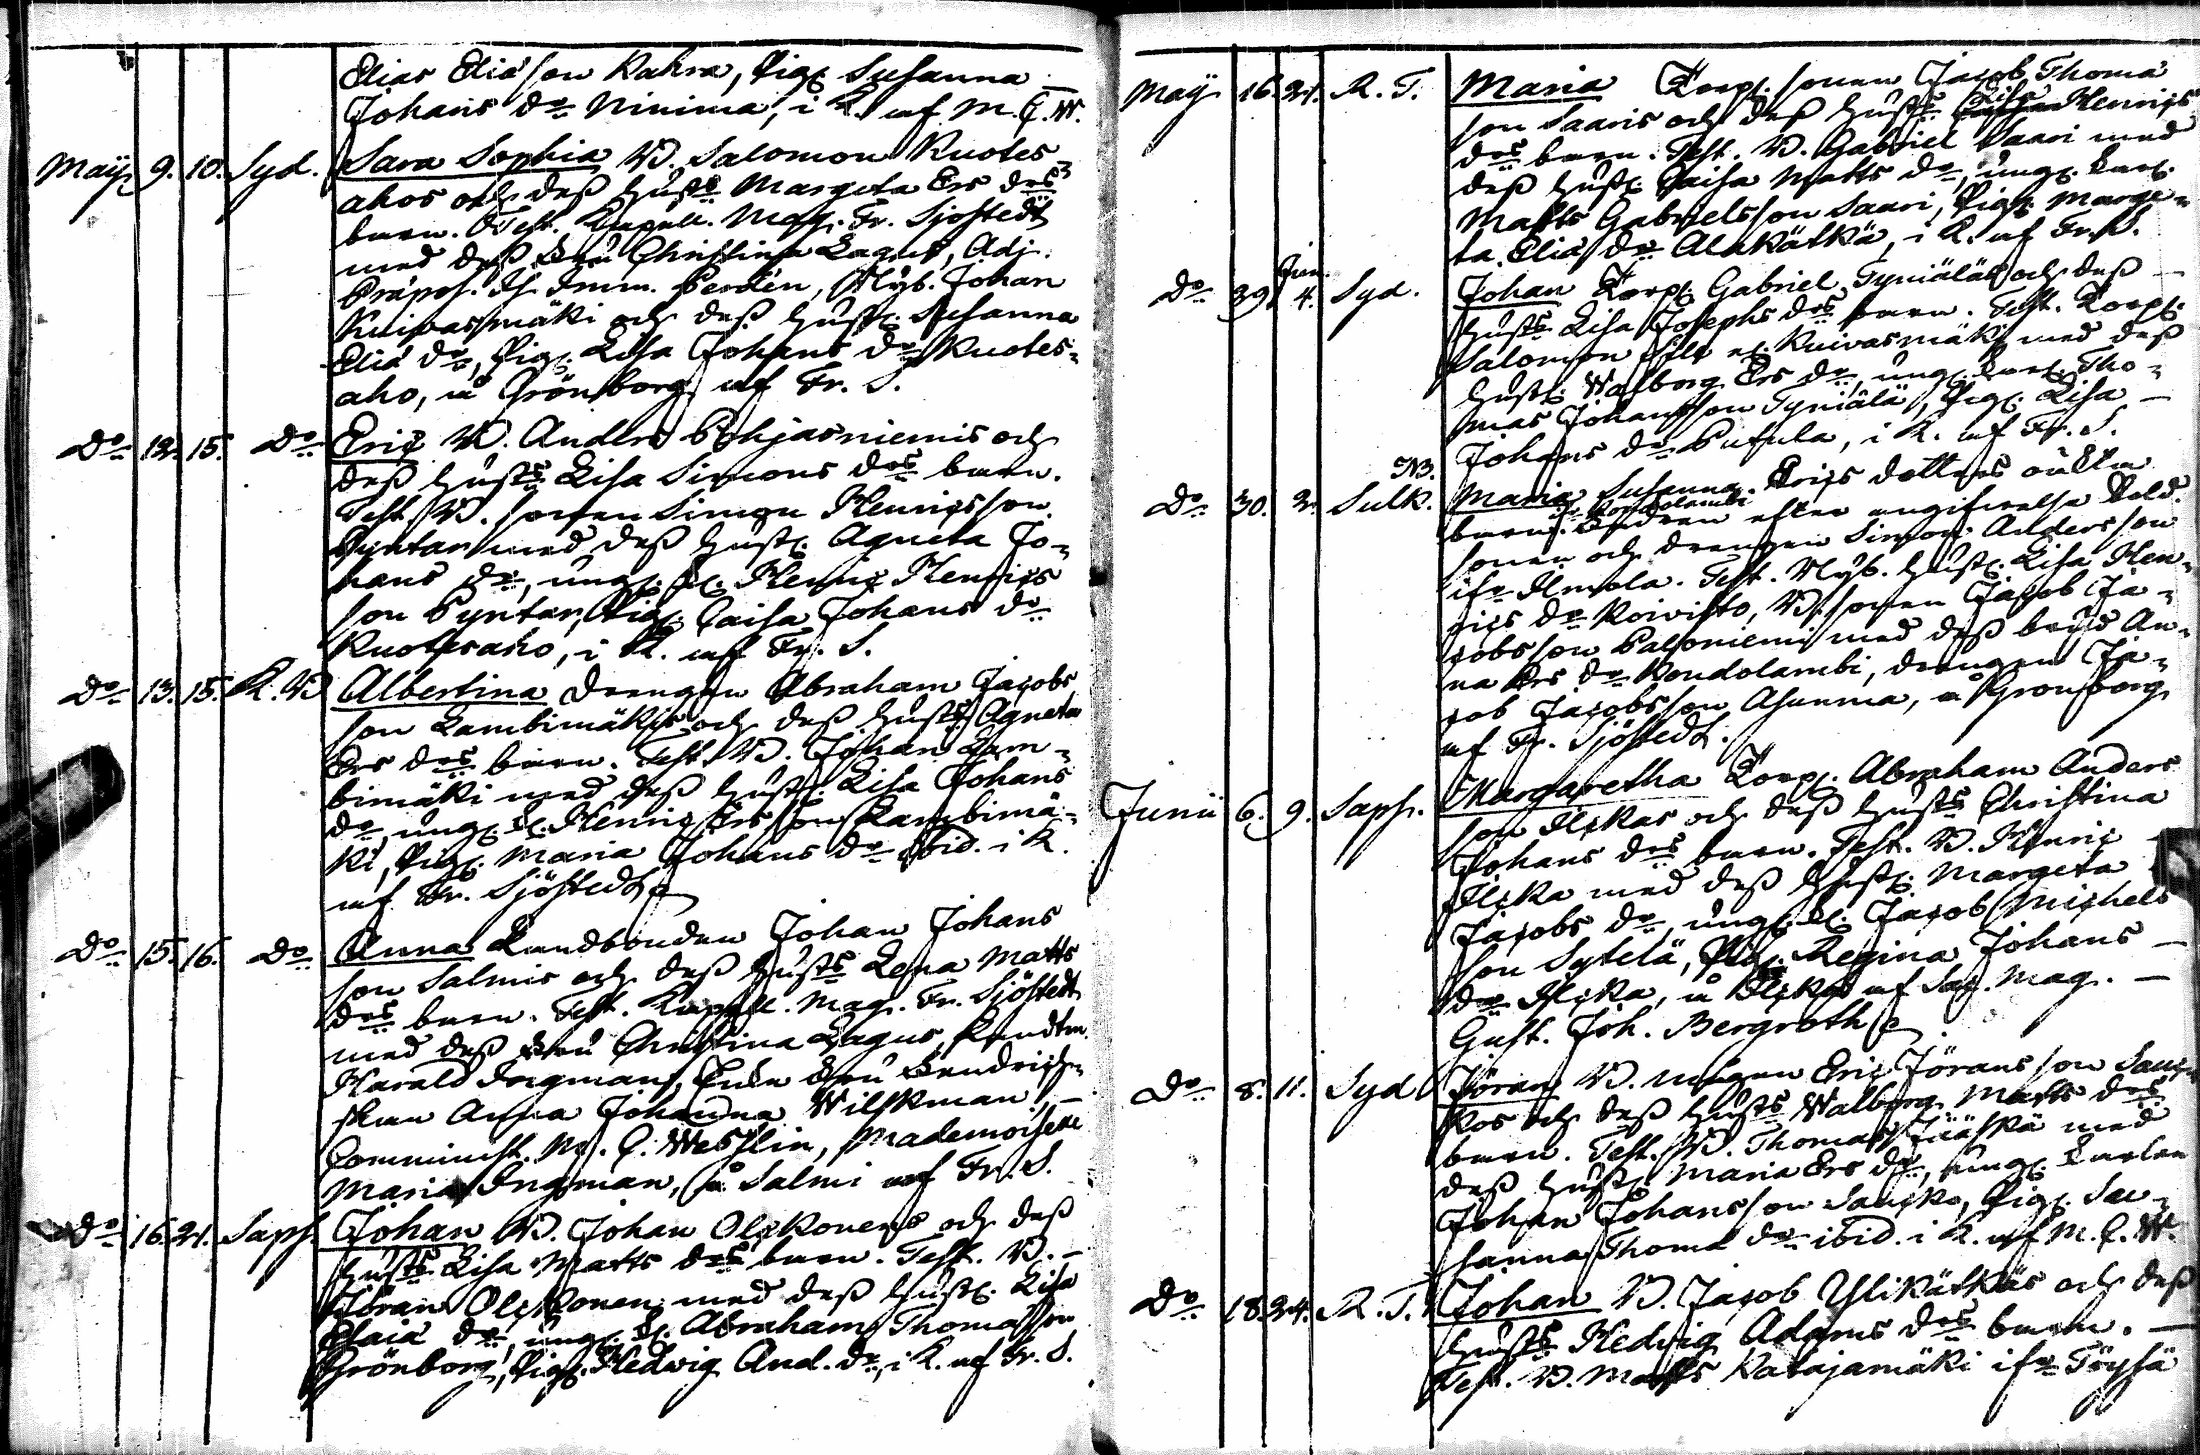 Elias Elias son Kahra, Pig. Susanna
Johans dr Ninima, i K. af M. C. W.
Maji 9. 10. Syd. Sara Sophia B. Salomon Kuotes
ahos och dess hustrs Margeta Ers drs
barn. Test. Kapell. Mag. Fr. Sjöstedt
med dess Fru Christina Lagus, Adj.
Präpos. Is. Imm. Perdén, Nyb. Johan
Kuivasmäki och dess hustr. Susanna
Elias dr, Pig. Lisa Johans dr Kuotes-
aho, å Grönborg af Fr. S.
Do 12. 15. Do Eric B. Anders Pohjasniemis och
dess hustrs Lisa Simons drs barn.
Test. B. sonen Simon Henricsson
Pyntar med dess hustr. Agneta Jo-
hans dr, ung. k. Henric Henrics
son Pyntar, Pig. Caisa Johans dr
Kuotesaho, i K. af Fr. S.
Do 13. 15. K. B Albertina drengen Abraham Jacobs
son Lambimäkis och dess hustrs Agneta
Ers drs barn. Test. B. Johan Lam-
bimäki med dess hustr. Lisa Johans
dr, ung. k. Henric Ersson Lambimä-
ki, Pig. Maria Johans dr ibid. i K.
af Fr. Sjöstedt
Do 15. 16. Do Anna Landbonden Johan Johans
son Salmis och dess hustrs Lena Matts
drs barn. Test. Kapell. Mag. Fr. Sjöstedt
med dess Fru Christina Lagus, Landtm.
Harald Ingman, Enke Fru
Anna Johanna Wilskman,
Comminist. M. C. Weslin, Mademoiselle
Maria Ingman, å Salmi af Fr. S.
Do 16. 21. Saph. Johan B. Johan Olckonens och dess
hustrs Lisa Matts drs barn. Test. B. -
Jöran Olckonen med dess hustr. Lisa
Elaia dr, ung. k. Abraham Thomasson
Grönborg, Pig. Hedwig And. dr, i K. af Fr. S.
Maji 16. 21. R. T. Maria Torp. sonen Jacob Thomæ
son Saaris och dess hustrs Lisa Henrics
drs barn. Test. B. Gabriel Saari med
dess hustr. Caisa Matts dr, ung. karl.
Matts Gabrielsson Saari, Pig. Marge-
ta Elias dr Alakätkä, i K. af Fr. S.
Do 29. Jun. 4. Syd. Johan Torp. Gabriel Tyniäläs och dess -
hustrs Lisa Josephs drs barn. Test. Torp.
Salomon Filt el. Kuivasmäki med dess
hustr. Walborg Ers dr, ung. karl. Tho-
mas Johansson Tyniälä, Pig. Lisa -
Johans dr Pusula, i K. af Fr. S.
NB.
Do 30. 2. Sulk. Maria Susanna Erics dotters oäkta
fr. Kondolambi
barn. Fadren efter angifvelse
sonen och drengen Simon Andersson
ifr. Ilmola. Test. Nyb. hustr. Lisa Hen-
rics dr Koivisto, B. sonen Jacob Ja-
cobsson Paloniemi med dess brud An-
na Ers dr Kondolambi, drengen Ja-
cob Jacobsson Asunma, å Grönborg
af Fr. Sjöstedt.
Junii 6. 9. Saph. Margaretha Torp. Abraham Anders
son Ilckas och dess hustrs Christina
Johans drs barn. Test. B. Henric
Ilcka med dess hustr. Margeta
Jacobs dr, ung. k. Jacob Michels
son Sytelä, Pig. Regina Johans -
dr Ilcka, å Ilcka af Sac. Mag. -
Gust. Joh. Bergroth
Do 8. 11. Syd Jöran B. mågen Eric Jöransson Sauc-
kos och dess hustrs Walborg Matts drs
barn. Test. B. Thomas Jääskä med
dess hustr. Maria Ers dr, ung. karlen
Johan Johansson Saucko, Pig. Su-
sanna Thomæ dr ibid. i K. af M. C. W.
Do 18. 24. R. T. Johan B. Jacob Ylikätkäs och dess
hustrs Hedvig Adams drs barn. -
Test. B. Matts Katajamäki ifr. Töysä